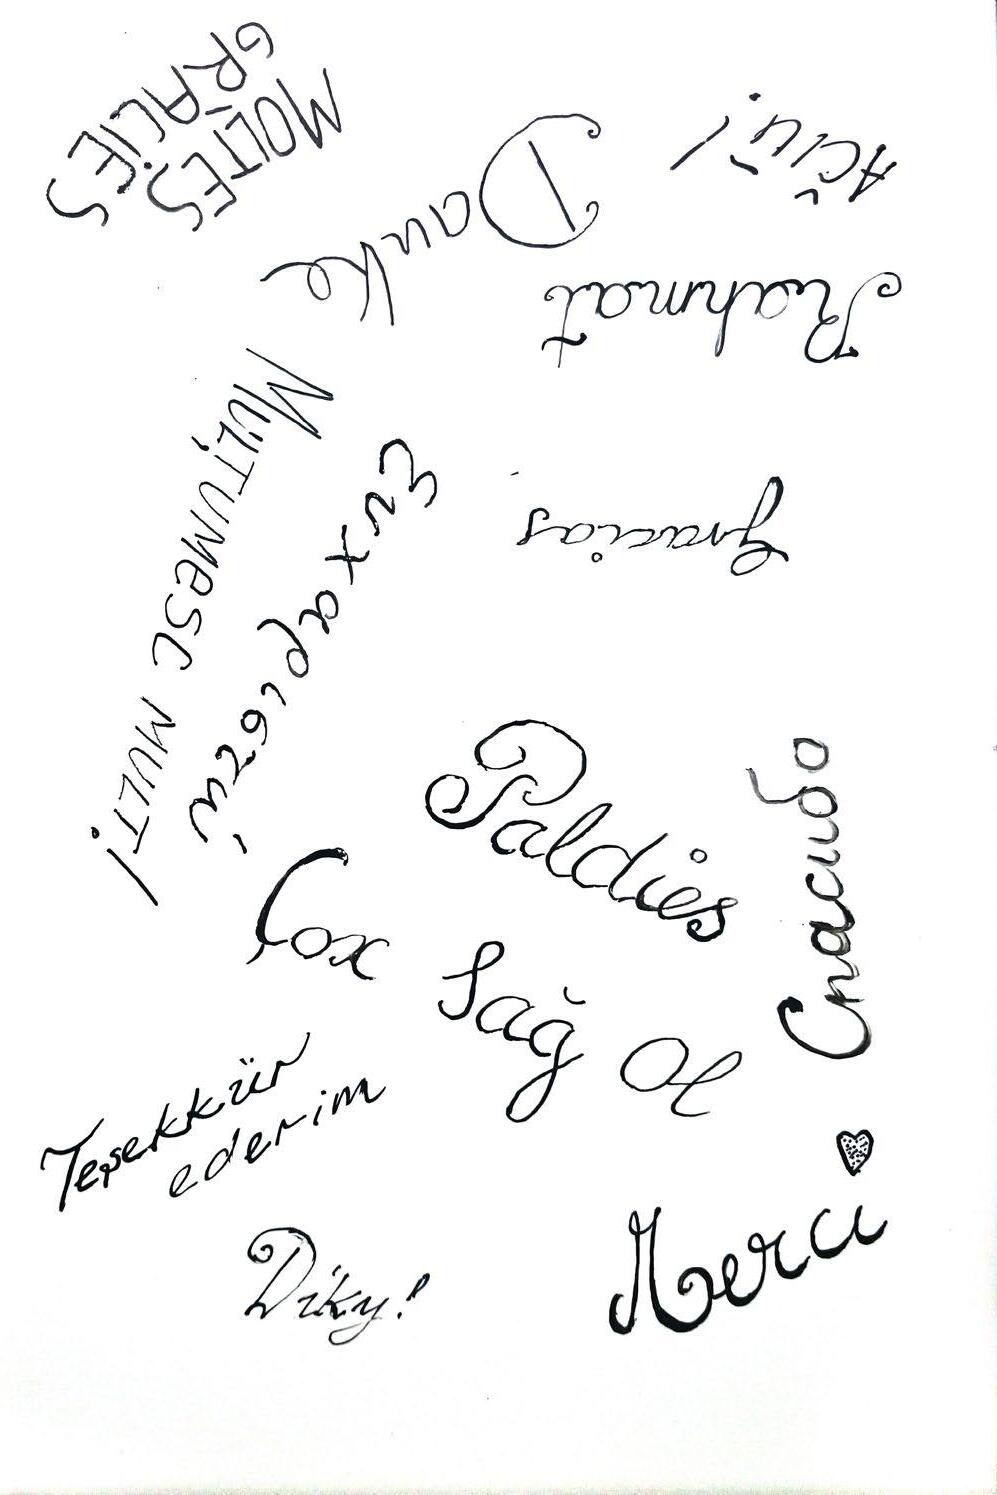 MOLTES
GRÀCIES
Ačiū!
Danke
Rahmat
MULȚUMESC MULT!
Ευχαριστώ
Gracias
Paldies
Спасибо
Çox Sağ Ol
Teşekkür
ederim
Díky!
Merci